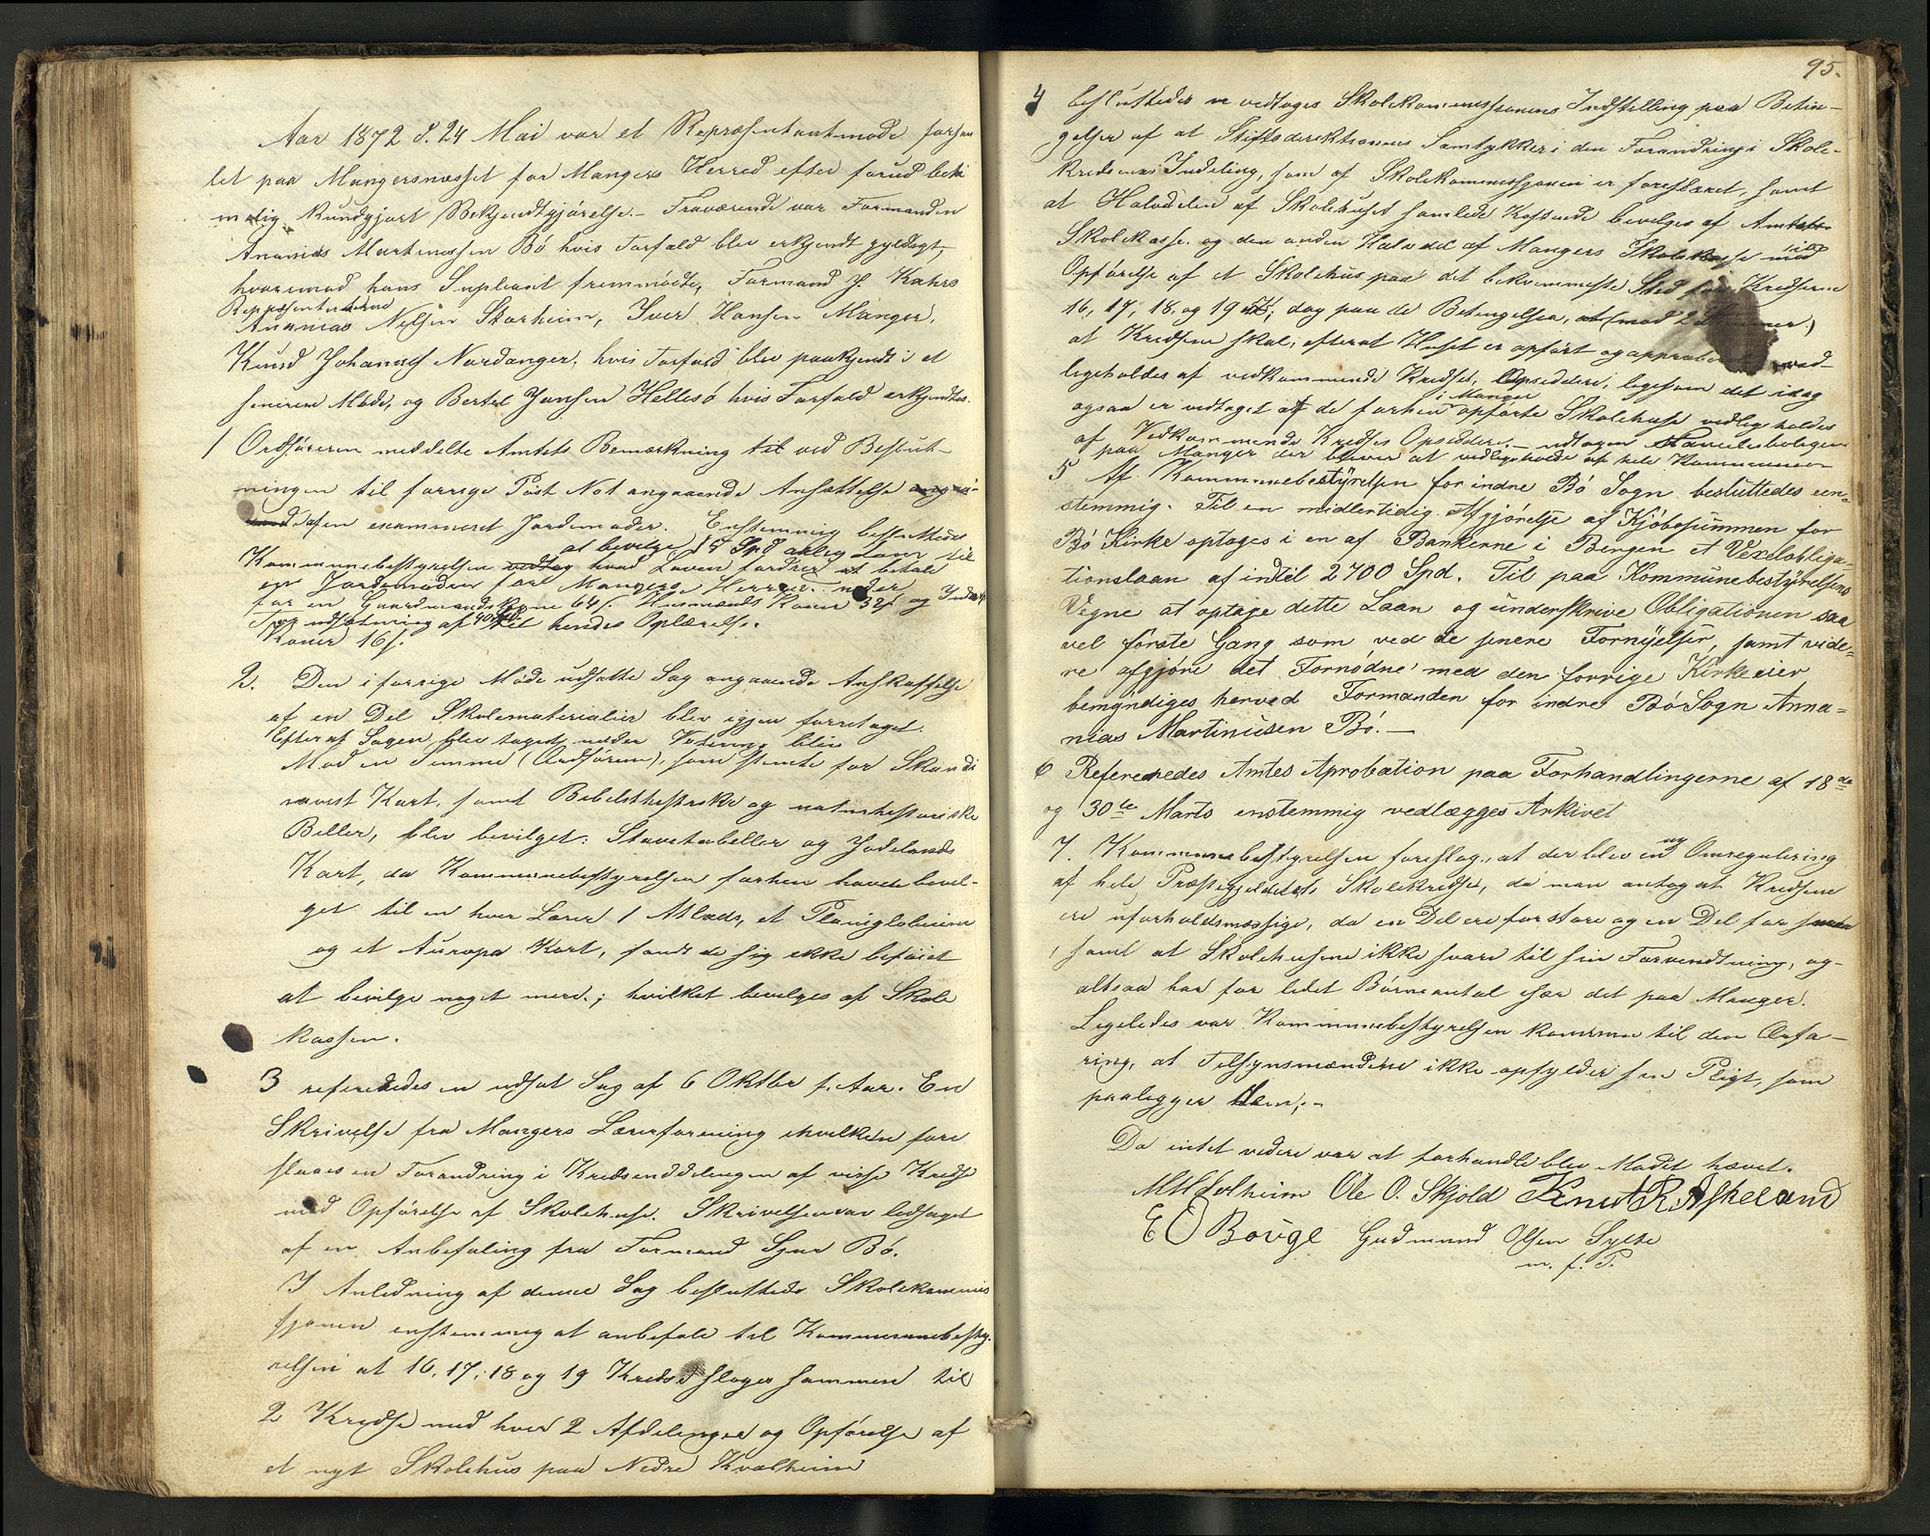 Aar 1872 d. 24 Mai var et Repræsentantmøde forsam
let paa Mangersnæsset for Mangers Herred efter forud beti
melig kundgjort Bekjendtgjørelse. Fraværende var Formanden
Ananias Martinussen Bø hvis Forfald blev erkjendt gyldigt,
hvorimod hans Supleant fremmødte, Formand J. Kahrs
Repræsentanterne
Ananias Nilsen Storheim, Iver Hansen Manger,
Knud Johannes Nordanger, hvis Forfald blev paakjendt i et
senere Møde, og Bertel Jansen Hellesø hvis Forfald erkjendtes.
1 Ordføreren meddelte Amtets Bemærkning til ved Beslut-
ningen til forrige Post No 1 angaaende Ansættelse
af en examineret Jordemoder. Enstemmig besluttedes
at bevilge 18 Spd aarlig Løn til
Kommunebestyrelsen vedtog hvad Loven fordrer at betale
og Jordemoderen for Mangers Herred
for en Gaardmandskone 64 s. Husmands Koner 32 s og Inderst
For udsætning af 40 Spd til hendes Oplærelse.
Koner 16 s.
2. Den i forrige Møde udsatte Sag angaaende Anskaffelse
af en Del Skolematerialier blev igjen foretaget.
Efterat Sagen blev taget under Votering blev
Mod en Stemme (Ordføreren), som stemte for Skandi
navisk Kart, samt Bibelsthistoriske og naturhistoriske
Billeder, blev bevilget: Stavetabeller og Jødelands
Kart, da Kommunebestyrelsen forhen havde bevil-
get til en hver Lærer 1 Atlads, et Planiglobium
og et Auropa Kart, fandt de sig ikke beføiet
at bevilge noget mere; hvilket bevilges af Skole
kassen.
3 refereredes en udsat Sag af 6 Oktbr f. Aar. En
Skrivelse fra Mangers Lærerforening i hvilken fore
slaaes en Forandring i Kredsinddelingen af visse Kredse
med Opførelse af Skolehuse. Skrivelsen var ledsaget
af en Anbefaling fra Formand Sjur Bø.
I Anledning af denne Sag besluttede Skolekommis
sjonen enstemmig at anbefale til Kommunebesty-
relsen at 16, 17, 18 og 19 Kreds sloges sammen til
2 Kredse med hver 2 Afdelinger og Opførelse af
et nyt Skolehus paa Nedre Kvalheim
95.
4 besluttedes at vedtages Skolekommissionens Indstilling paa Betin-
gelser af at Stiftsdirektionens Samtykker i den Forandring i Skole-
Kredsenes Indeling, som af Skolekommissjonen er foreslaaet, samt
at Halvdelen af Skolehuset samlede Kostende bevilges af Amtets
Skolekasse og den anden Halvdel af Mangers Skolekasse til
Opførelse af et Skolehus paa det bekvemmeste Sted for Kredsene
16, 17, 18 og 19, dog paa de Betingelser, (mod 2 Stemmer)
at Kredsene skal, efterat Huset er opført og approberet ved-
ligeholdes af vedkommende Kredses Opsiddere, ligesom det idag
i Manger
ogsaa er vedtaget at de forhen opførte Skolehuse vedligeholdes
af Vedkommende Kredses Opsiddere, - undtagen Familiebolegen
paa Manger der bliver at vedligeholde af hele Kommunen
5 Af Kommunebestyrelsen for indre Bø Sogn besluttedes een-
stemmig. Til en midlertidig Afgjørelse af Kjøbesummen for
Bø Kirke optages i en af Bankerne i Bergen et Vexelobliga-
tionslaan af indtil 2700 Spd. Til paa Kommunebestyrelsens
Vegne at optage dette Laan og underskrive Obligationen saa
vel første Gang som ved de senere Fornyelser, samt vide-
re afgjøre det Fornødne med den forrige Kirkeeier
bemyndiges herved Formanden for indre Bø Sogn Anna-
nias Martinusen Bø. —
6 Refereredes Amtes Aprobation paa Forhandlingerne af 18de
og 30te Marts enstemmig vedlægges Arkivet
7. Kommunebestyrelsen foreslog, at der blev en ny Omregulering
af hele Præstegjeldets Skolekredse, da man antog at Kredsene
ere uforholdsmæssige, da en Del ere for store og en Del for smaa
samt at Skolehusene ikke svare til sin Forvendtning, og-
altsaa har for lidet Børneantal især det paa Manger.
Ligeledes var Kommunebestyrelsen kommen til den Ærfa-
ring, at Tilsynsmændene ikke opfylder sin Pligt, som
paalegger dem, -
Da intet videre var at forhandle blev Mødet hævet.
Ole O. Skjold Knut R. Askeland
E O Bouge Gudmund Olsen Sylte
m. f. P.